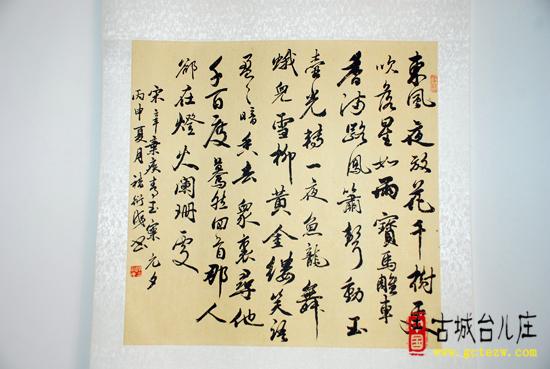 東風夜放花千樹更
吹落星如雨寶馬雕車
香滿路鳳簫聲動玉
壺光轉一夜魚龍舞
蛾兒雪柳黃金縷笑語
盈々暗香去眾裏尋他
千百度驀然回首那人
卻在燈火闌珊處
宋辛棄疾青玉案元夕
丙申夏月
中国
古城台儿庄
www.gctezw.com